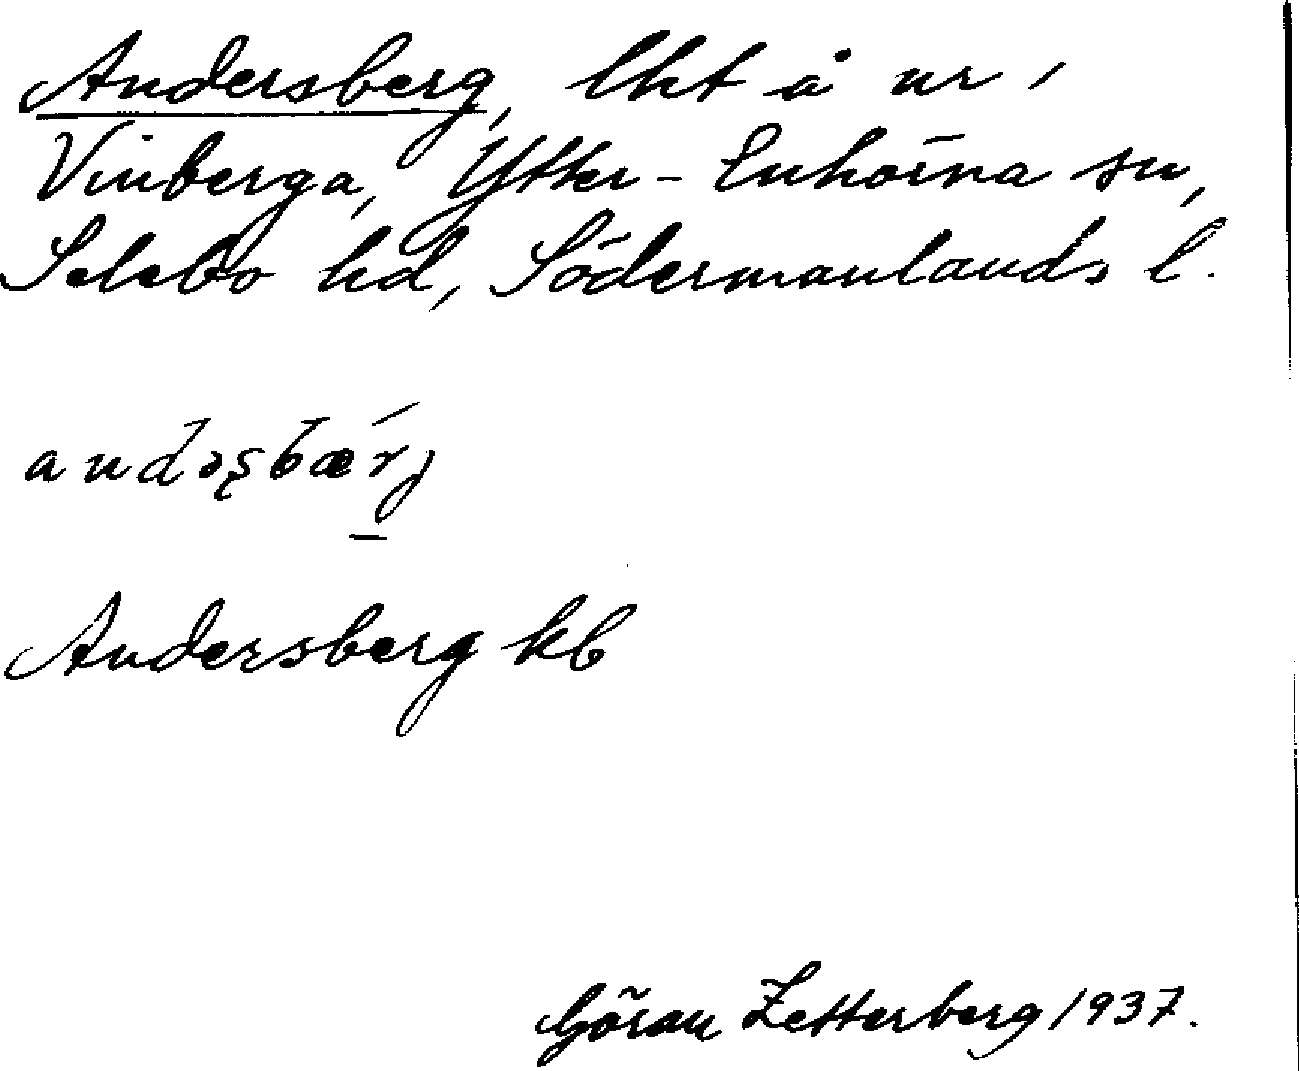 Andersberg, lht å nr 1
Vinberga, Ytter-Enhörna sn,
Selebo hd, Södermanlands l.
andəʂbær̯j
Andersberg kb
Göran Zetterberg 1937.